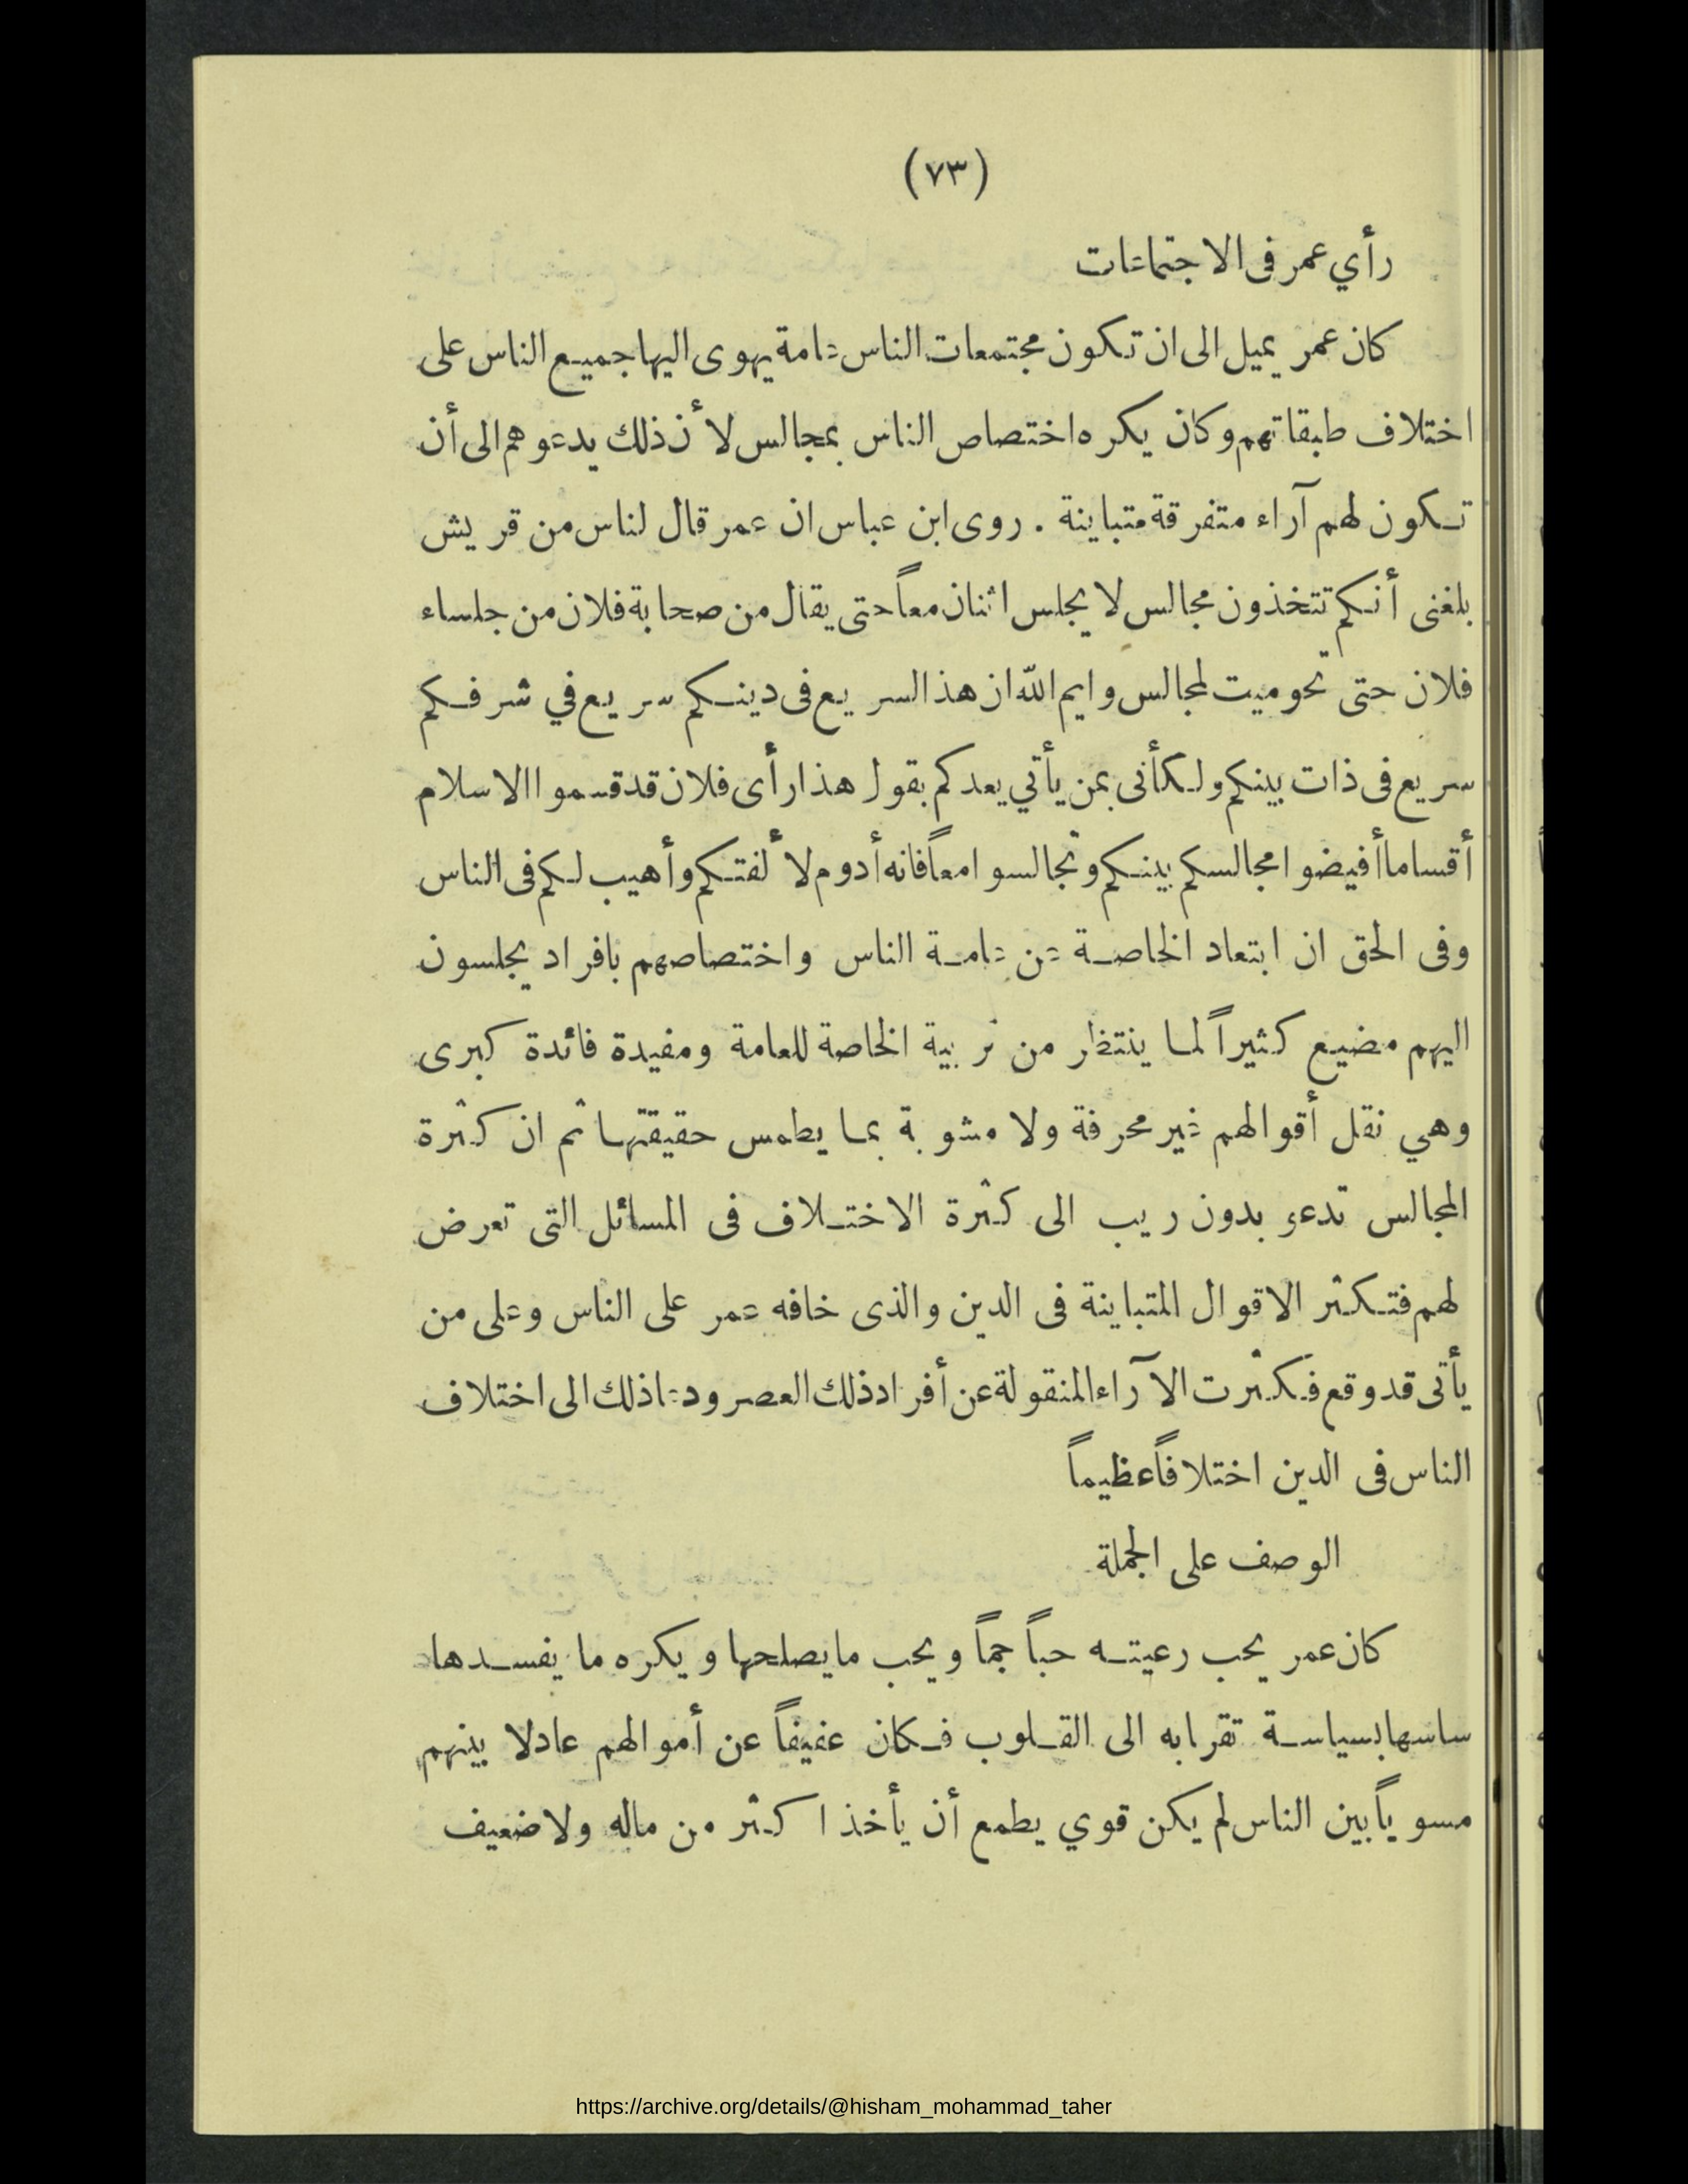 (٧٣)
رأي عمر فى الاجتماعات
كان عمر يميل الى ان تكون مجتمعات الناس عامة يهوى اليها جميع الناس على
اختلاف طبقاتهم وكان يكره اختصاص الناس بمجالس لأن ذلك يدعوهم الى أن
تكون لهم آراء متفرقة متباينة . روى ابن عباس ان عمر قال لناس من قريش
بلغنى أنكم تتخذون مجالس لا يجلس اثنان معاً حتى يقال من صحابة فلان من جلساء
فلان حتى تحوميت لمجالس وايم الله ان هذا لسريع فى دينكم سريع في شرفكم
سريع فى ذات بينكم ولكأنى بمن يأتي يعدكم بقول هذا رأى فلان قد قسموا الاسلام
أقساما أفيضوا مجالسكم بينكم وتجالسوا معاً فانه أدوم لألفتكم وأهيب لكم فى الناس
وفى الحق ان ابتعاد الخاصة عن عامة الناس واختصاصهم بافراد يجلسون
اليهم مضيع كثيراً لما ينتظر من تربية الخاصة للعامة ومفيدة فائدة كبرى
وهي نقل أقوالهم غير محرفة ولا مشوبة بما يطمس حقيقتها ثم ان كثرة
المجالس تدعو بدون ريب الى كثرة الاختلاف فى المسائل التى تعرض
لهم فتكثر الاقوال المتباينة فى الدين والذى خافه عمر على الناس وعلى من
يأتى قد وقع فكثرت الآراء المنقولة عن أفراد ذلك العصر ودعا ذلك الى اختلاف
الناس فى الدين اختلافاً عظيماً
الوصف على الجملة
كان عمر يحب رعيته حباً جماً ويحب ما يصلحها ويكره ما يفسدها
ساسها بسياسة تقرا به الى القلوب فكان عفيفاً عن أموالهم عادلا بينهم
مسوياً بين الناس لم يكن قوي يطمع أن يأخذ اكثر من ماله ولا ضعيف
https://archive.org/details/@hisham_mohammad_taher